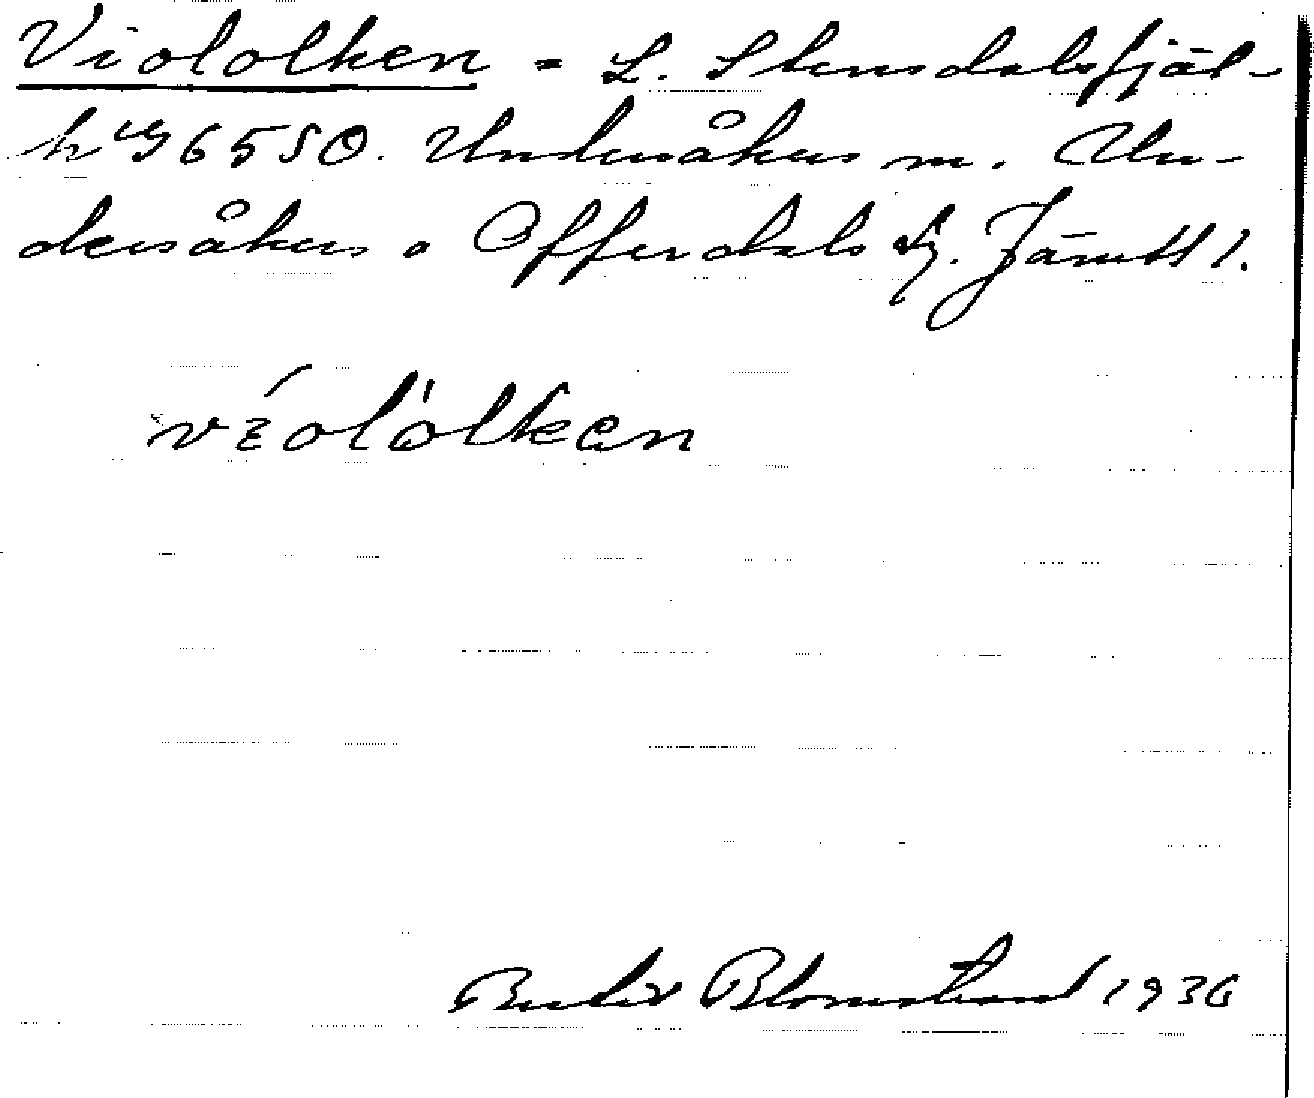 Viololken = L. Stensdalsfjäl-
6550. Undersåkers sn. Un-
dersåkers o Offerdals tg. Jämtl.
víolölken
Blomstrand 1936